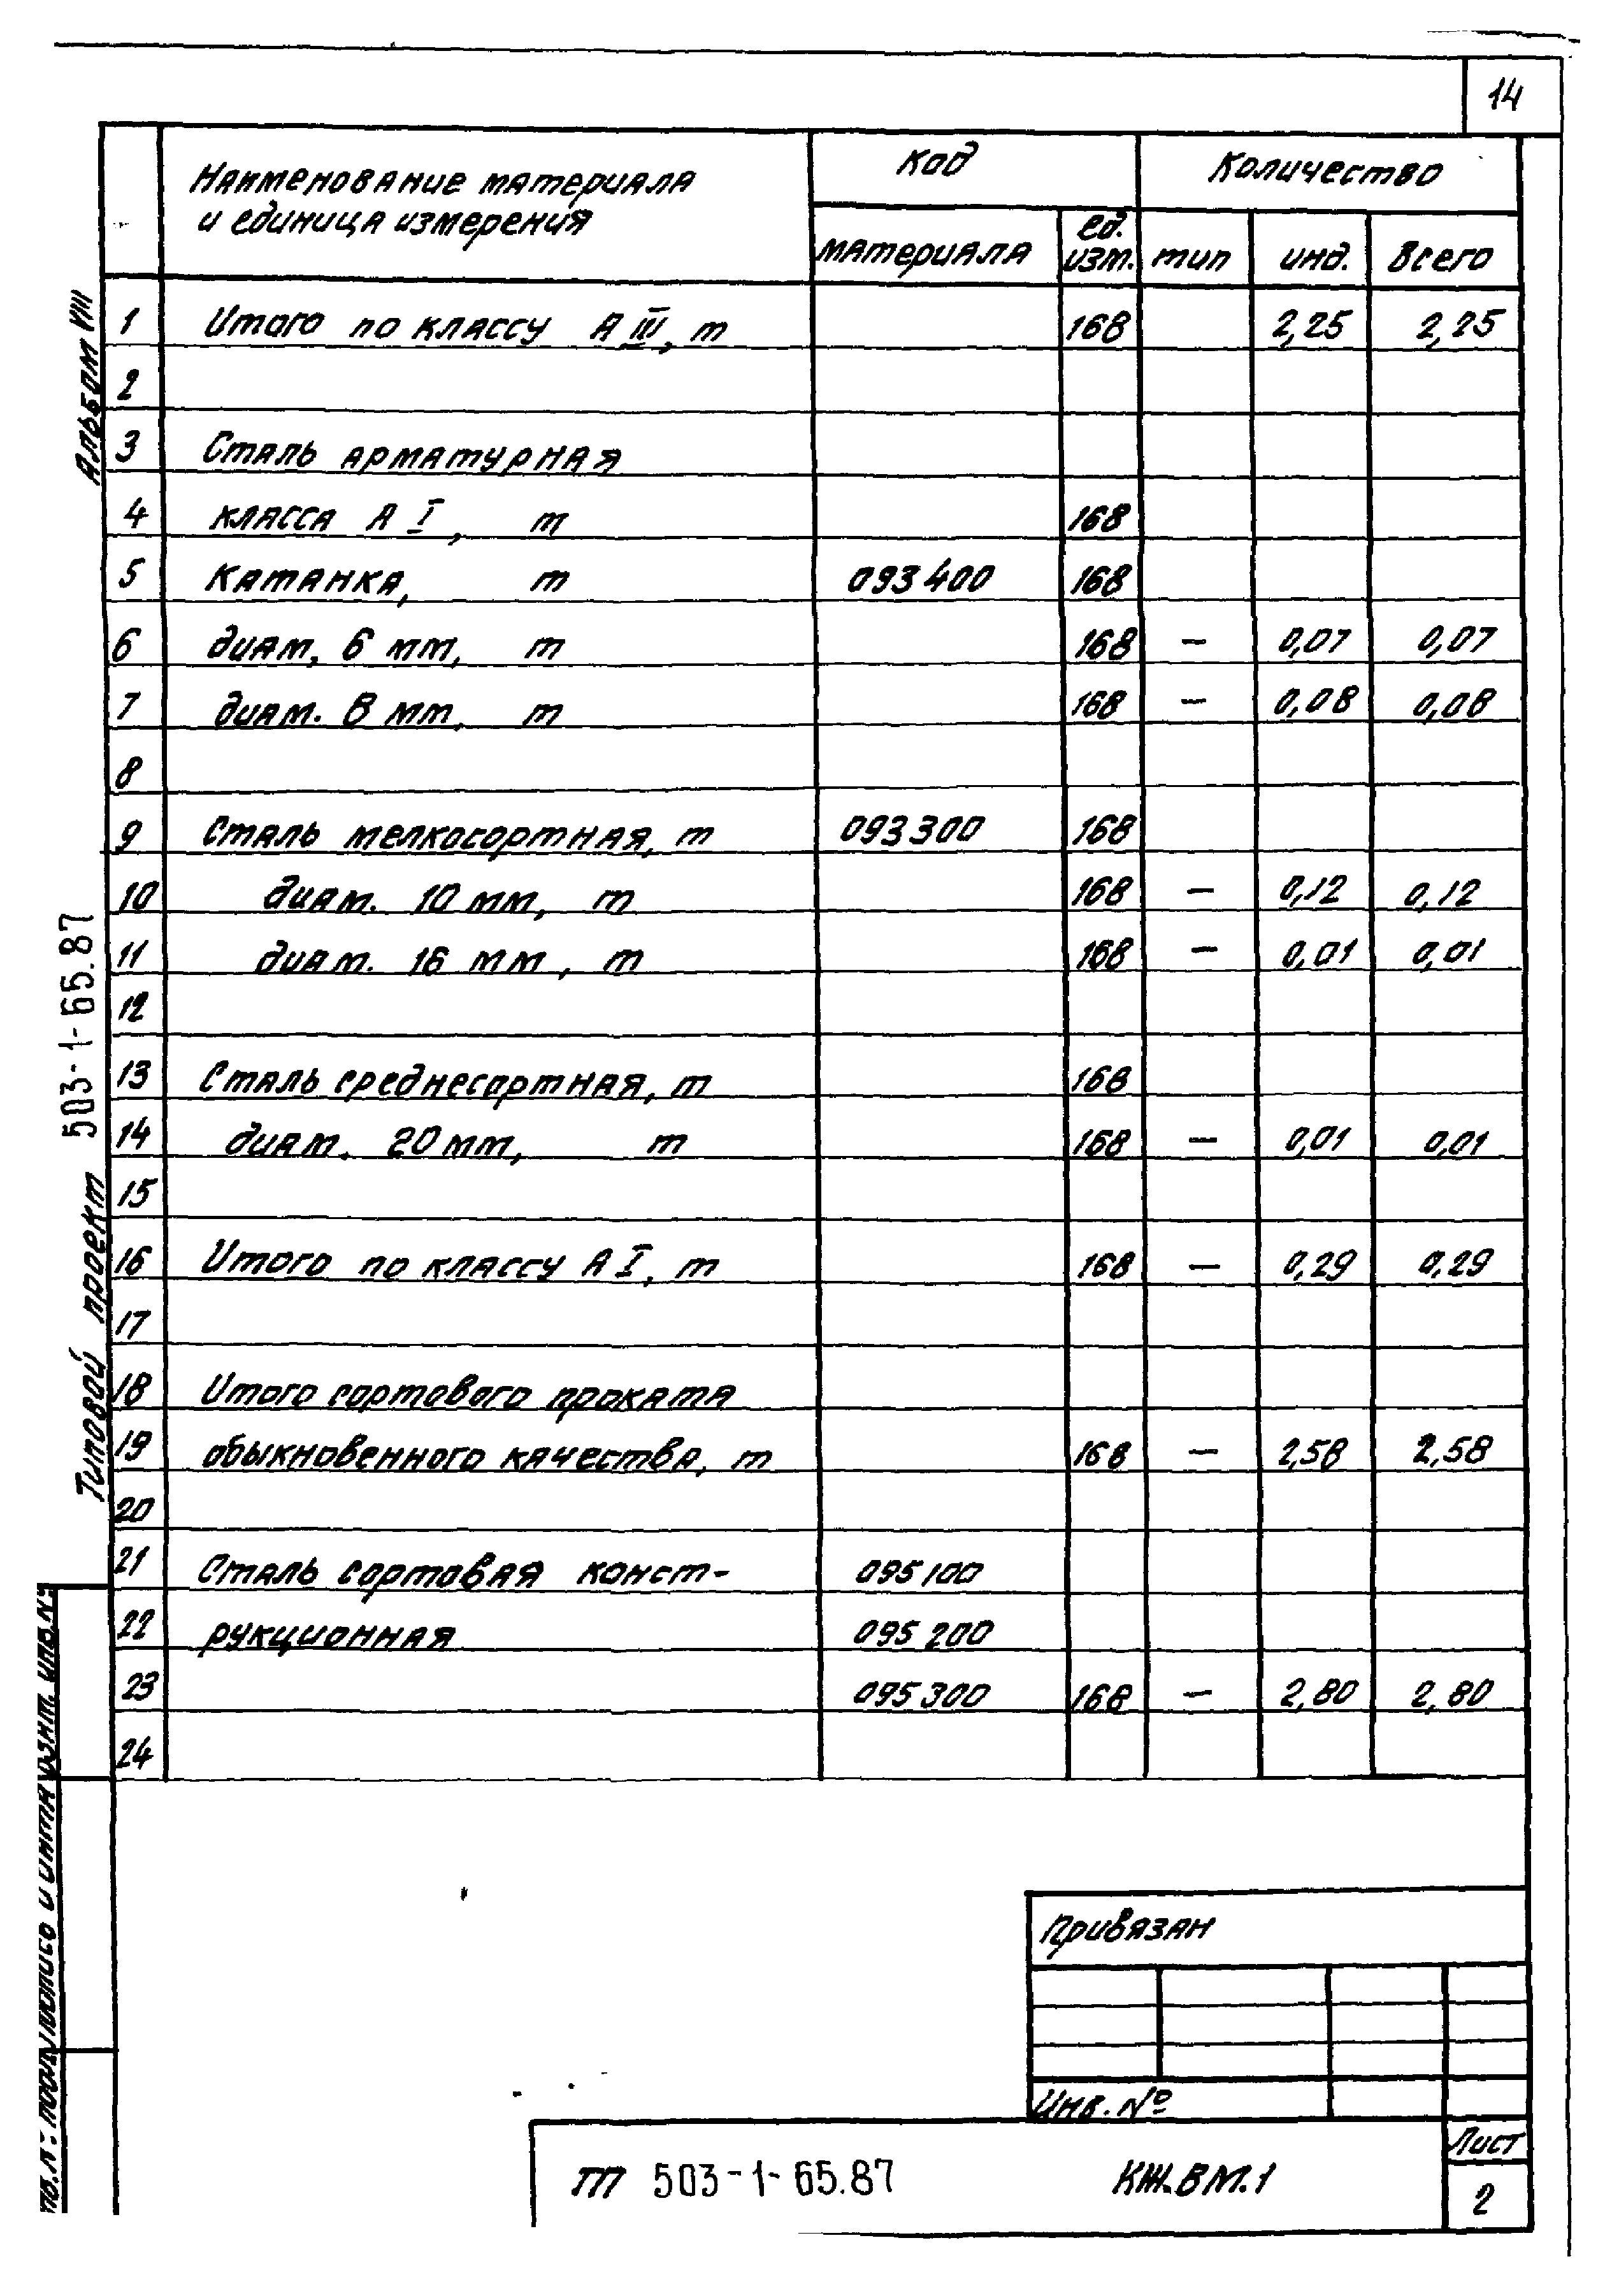 14
Наименование материала
и единица измерения
Код
Количество
материала
ед. изм.
тип
инд.
Всего
1 Итого по классу А III, т 168 2,25 2,25
2
3 Сталь арматурная
4 класса А I, т 168
5 Катанка, т 093400 168
6 диам. 6 мм, т 168 — 0,07 0,07
7 диам. 8 мм, т 168 — 0,08 0,08
8
9 Сталь мелкосортная, т 093300 168
10 диам. 10 мм, т 168 — 0,12 0,12
11 диам. 16 мм, т 168 — 0,01 0,01
12
13 Сталь среднесортная, т 168
14 диам. 20 мм, т 168 — 0,01 0,01
15
16 Итого по классу А I, т 168 — 0,29 0,29
17
18 Итого сортового проката
19 обыкновенного качества, т 168 — 2,58 2,58
20
21 Сталь сортовая конст- 095100
22 рукционная 095200
23 095300 168 — 2,80 2,80
24
Альбом VIII
Типовой проект 503-1-65.87
подпись и дата
Взам. инв. №
Привязан
Инв. №
ТП 503-1-65.87 КЖ.ВМ.1
Лист
2